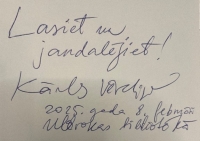 Lasiet un
jandalējiet!
Kārlis Vērdiņš
2025. gada 8. februārī
Mārokas bibliotēkā